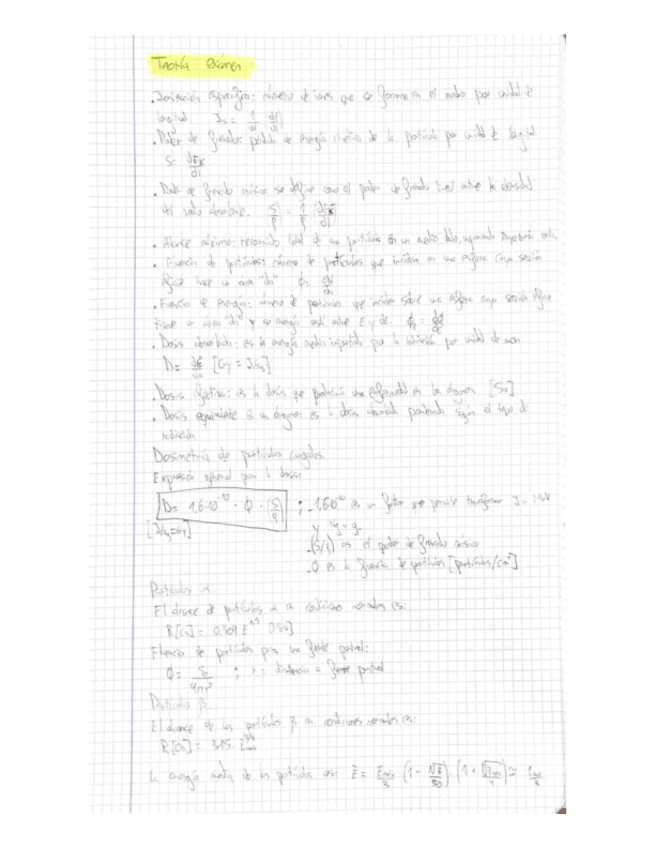 Teoría Exámen
. Ionización específica: número de iones que se forman en el medio por unidad de
longitud. Is = 1/w dE/dl
. Poder de frenado: pérdida de energía cinética de la partícula por unidad de longitud
S = dEk/dl
. Poder de frenado másico se define como el poder de frenado lineal entre la densidad
del medio absorbente. S/ρ = 1/ρ dEk/dl
. Alcance máximo: recorrido total de una partícula en un medio dado, siguiendo trayectoria
. Fluencia de partículas: número de partículas que inciden en una esfera cuya sección
eficaz tiene un área "da" Φ = dN/da
. Fluencia de energía: número de partículas que inciden sobre una esfera cuya sección eficaz
tiene un área "da" y su energía está entre E y dE.
. Dosis absorbida: es la energía media impartida por la radiación por unidad de masa
D = dE/dm [Gy = J/kg]
. Dosis efectiva: es la dosis que produciría una enfermedad en los órganos [Sv]
. Dosis equivalente en un órgano es la dosis absorbida ponderada según el tipo de
radiación
Dosimetría de partículas cargadas
Expresión general para la dosis:
D = 1,6·10⁻¹⁰ · Φ · (S/ρ) ; - 1,6·10⁻¹⁰ es un factor que permite transformar J
[J/kg=Gy] y kg = g.
. (S/ρ) es el poder de frenado másico
. Φ es la fluencia de partículas [partículas/cm²]
Partículas α
El alcance de partículas α en condiciones normales es:
R[cm] = 0,309 E^3/2 [MeV]
Fluencia de partículas para una fuente puntual:
Φ = S₀/4πr² ; r = distancia a fuente puntual
Partículas β
El alcance de las partículas β en condiciones normales es:
R[cm] =
La energía media de las partículas es: Ē = Emax/3 (1 - √Z/50) · (1 + √Emax/4) ≃ Emax/3